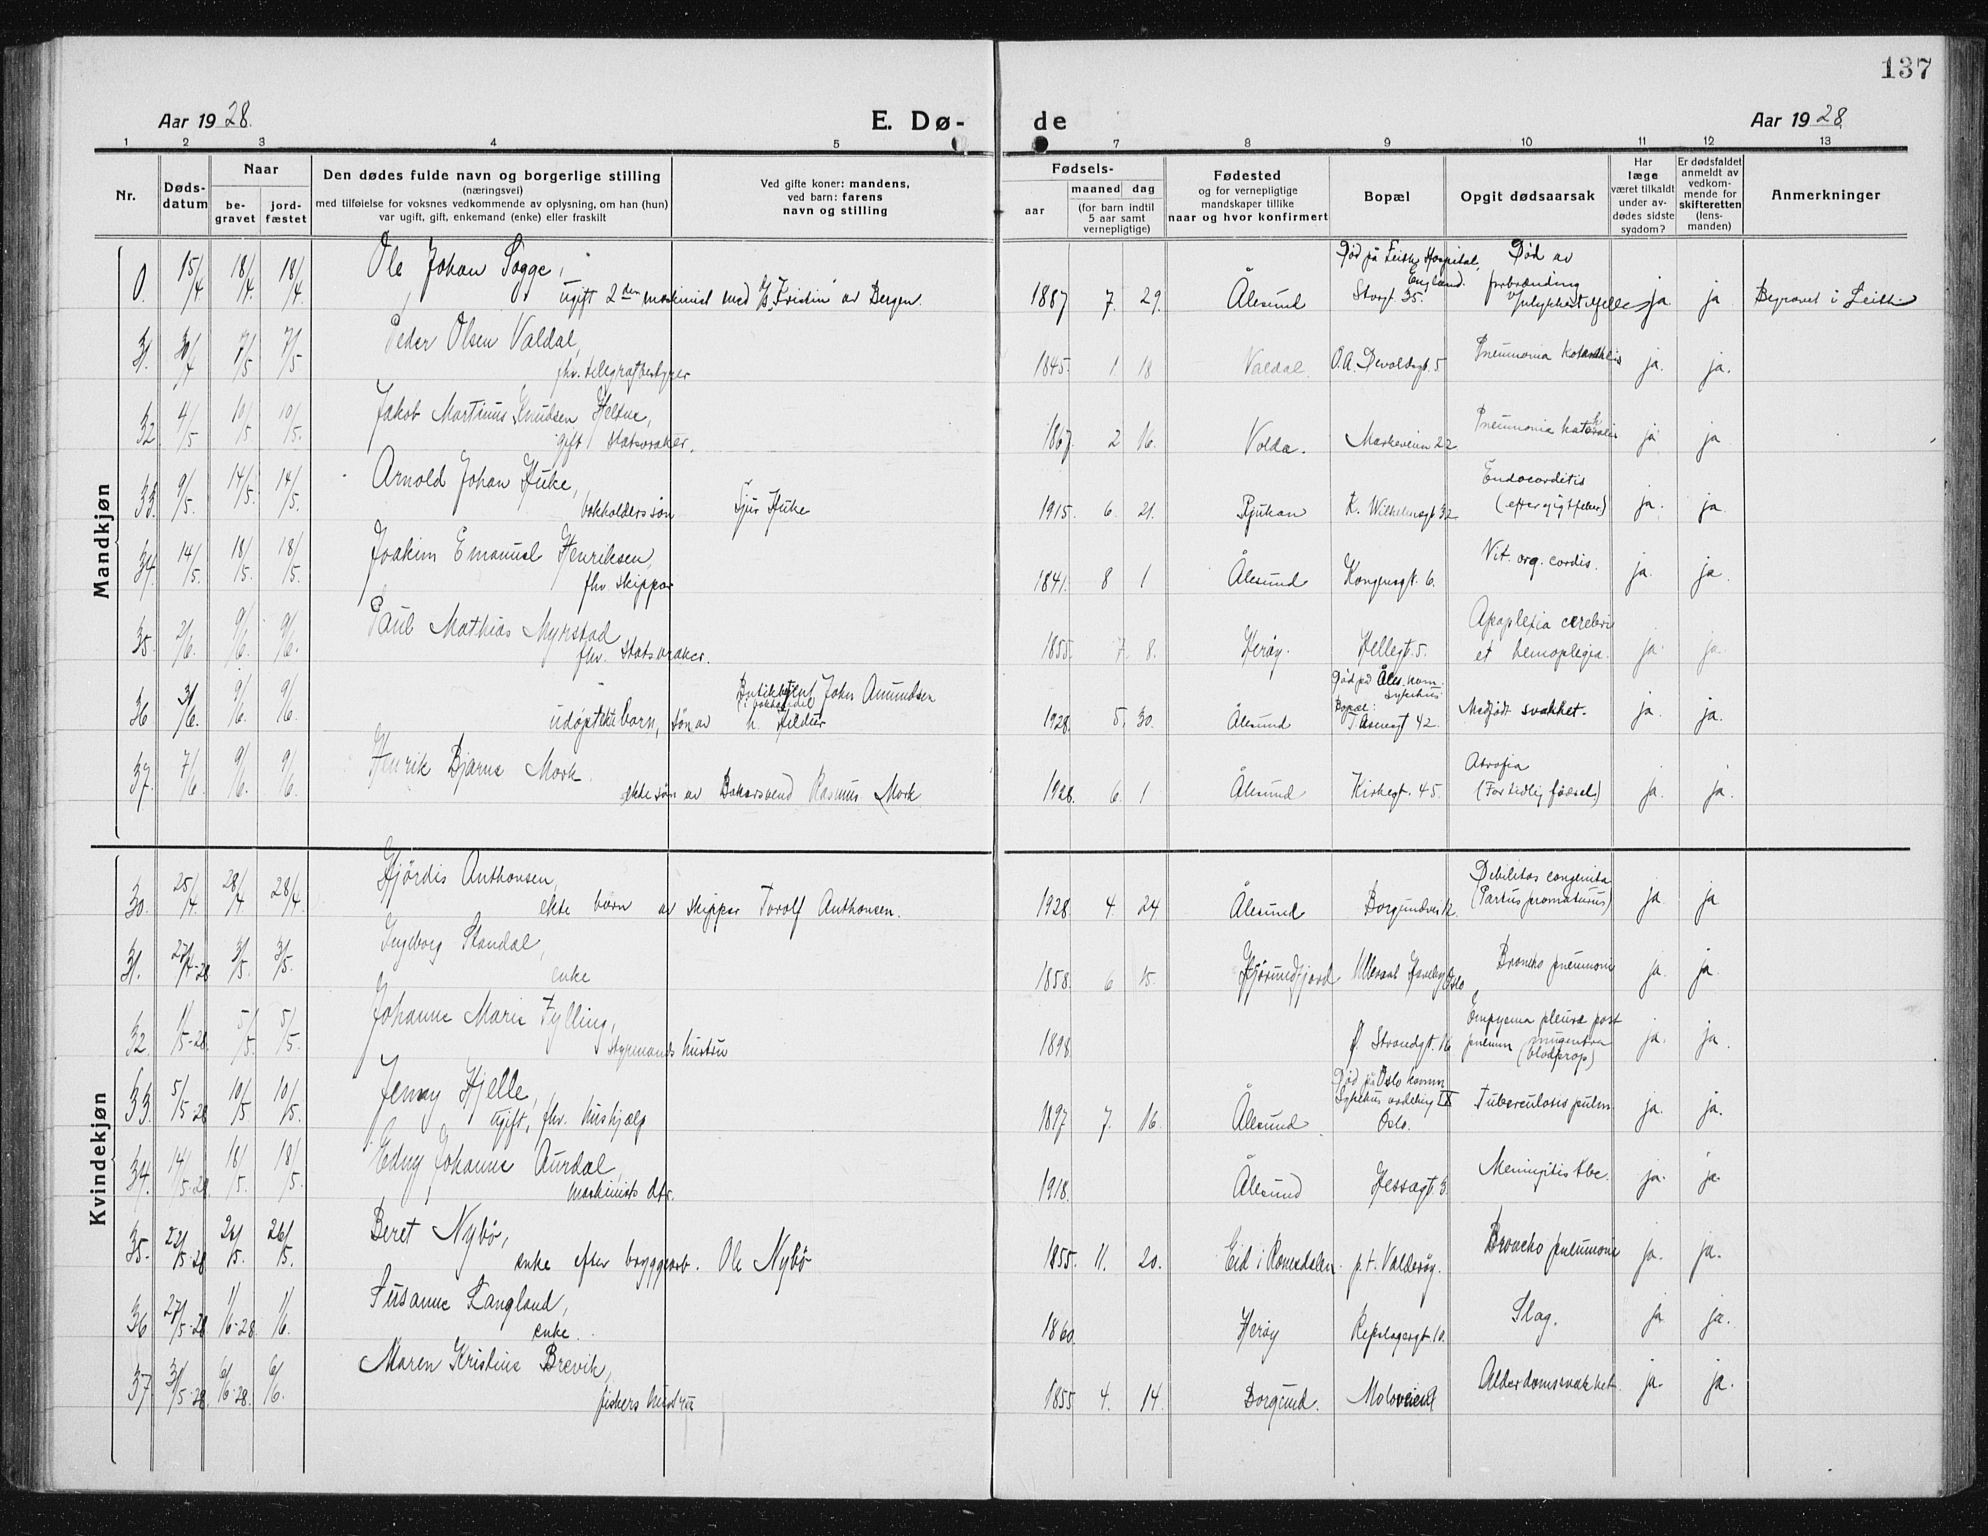 137
Aar 1928. E. Dø- de Aar 1928
1 2 3 4 5 7 8 9 10 11 12 13
Nr. Døds-datum Naar be-gravet jord-fæstet Den dødes fulde navn og borgerlige stilling (næringsvei) med tilføielse for voksnes vedkommende av oplysning, om han (hun) var ugift, gift, enkemand (enke) eller fraskilt Ved gifte koner: mandens, ved barn: farens navn og stilling Fødsels- aar maaned dag (for barn indtil 5 aar samt vernepligtige) Fødested og for vernepligtige mandskaper tillike naar og hvor konfirmert Bopæl Opgit dødsaarsak Har læge været tilkaldt under av-dødes sidste sygdom? Er dødsfaldet anmeldt av vedkom-mende for skifteretten (lens-manden) Anmerkninger
Mandkjøn
0. 15/4 18/4. 18/4. Ole Johan Sogge, Død på Leith Hospital, England. Død av
ugift 2den maskinist med "Kristin" av Bergen. 1887 7. 29. Ålesund Storgt. 35. forbrænding ja ja Begravet i Leith.
31. 30/4 7/5 7/5 Peder Olsen Valdal,
fhv. telegrafbestyrer 1845. 1 18 Valdal. O. A. Devoldsgt. 5 Pneumonia katarrhalis ja. ja.
32. 4/5 10/5 10/5. Jakob Martinus Knudsen Heltne,
gift Statsvraker. 1867. 2 16. Volda. Markeveien 22 Pneumonia katarralis ja ja
33. 9/5. 14/5. 14/5. Arnold Johan Huke,
bokholderssøn Sjur Huke 1915. 6. 21. Rjukan K. Wilhelmsgt. 32 Endocorditis (efter gigtfeber) ja. ja.
34. 14/5. 18/5. 18/5. Joakim Emanuel Henriksen,
fhv skipper 1841. 8 1 Ålesund Kongensgt. 6. Vit. org. cordis. ja. ja.
35. 2/6. 9/6. 9/6. Paul Mathias Myrstad
fhv. Statsvraker. 1855. 7. 8. Herøy. Hellegt. 5. Apoplexia cerebri et hemoplegia. ja. ja.
36 3/6. 9/6. 9/6. udøpt barn, søn av John Amundsen
h. Hildur 1928. 5. 30. Ålesund Død på Åles. kom. sykehus Bopæl: 42 Medfødt svakhet. ja. ja.
37. 7/6. 9/6. 9/6. Henrik Bjarne Mork
ekte søn av Bakersvend Rasmus Mork 1928. 6. 1 Ålesund Kirkegt. 45. Atrofia (For tidlig fødsel) ja. ja.
Kvindekjøn
30. 25/4. 28/4 28/4. Hjørdis Anthonsen,
ekte barn av skipper Torolf Anthonsen. 1928. 4. 24 Ålesund Borgundvei 12. Debilitas congenita (Partus prematurus) ja ja
31. 27/4-28 3/5. 3/5. Ingeborg Standal,
enke 1858. 6 15. Hjørundfjord Ulleraal Oslo Broncho pneumoni ja. ja.
32. 1/5-28. 5/5 5/5. Johanne Marie Fylling,
styrmands hustru 1898. Ø Strandgt. 16 Empyema pleura post pneum (blodprop) ja. ja.
33 5/5-28 10/5 10/5. Jenny Hjelle,
ugift, fhv. hushjælp 1897 7. 16. Ålesund. Død på Oslo komm Sykehus avdeling IX Oslo. Tuberculosis pulm. ja. ja.
34. 14/5-28. 18/5. 18/5. Edny Johanne Aurdal,
maskinists dtr. 1918. Ålesund Hessagt 3. Meningitis tbc. ja. ja.
35. 22/5-28 26/5. 26/5. Beret Nybø,
enke efter bryggearb. Ole Nybø 1855. 11. 20. Eid i Romsdalen. p.t. Valderøy. Broncho pneumoni ja. ja.
36 27/5-28 1/6-28. 1/6. Susanne Langland,
enke. 1860. Herøy Repslagergt. 10. Slag. ja. ja.
37 31/5-28. 6/6-28. 6/6. Maren Kristine Brevik,
fiskers hustru 1855 4. 14. Borgund. Moloveien Alderdomssvakhet. ja. ja.